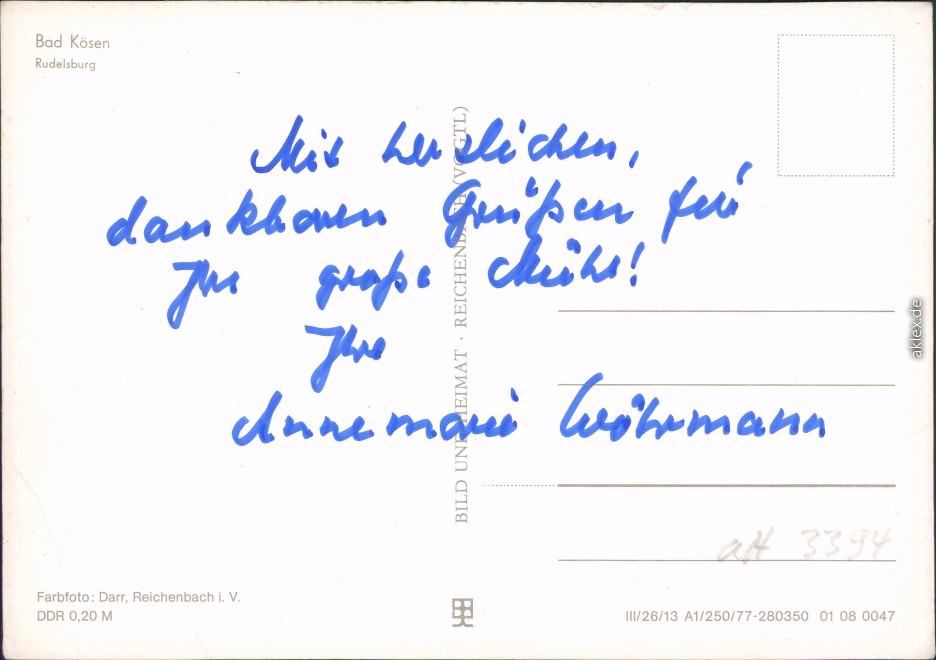 Bad Kösen
Rudelsburg
Mit herzlichen,
dankbaren Grüßen für
Ihre große Mühe!
Ihre
Annemarie Wöhrmann
BILD UND HEIMAT · REICHENBACH (VOGTL)
aklex.de
aH 3394
Farbfoto: Darr, Reichenbach i. V.
DDR 0,20 M
III/26/13 A1/250/77-280350 01 08 0047